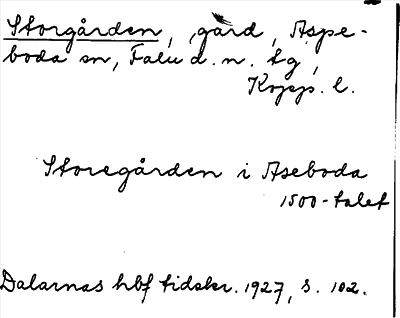 Storgården, gård, Aspe-
boda sn, Falu d. n. tg,
Kopp. l.
Storegården i Aseboda
1500-talet
Dalarnas hbf tidskr. 1927, s. 102.